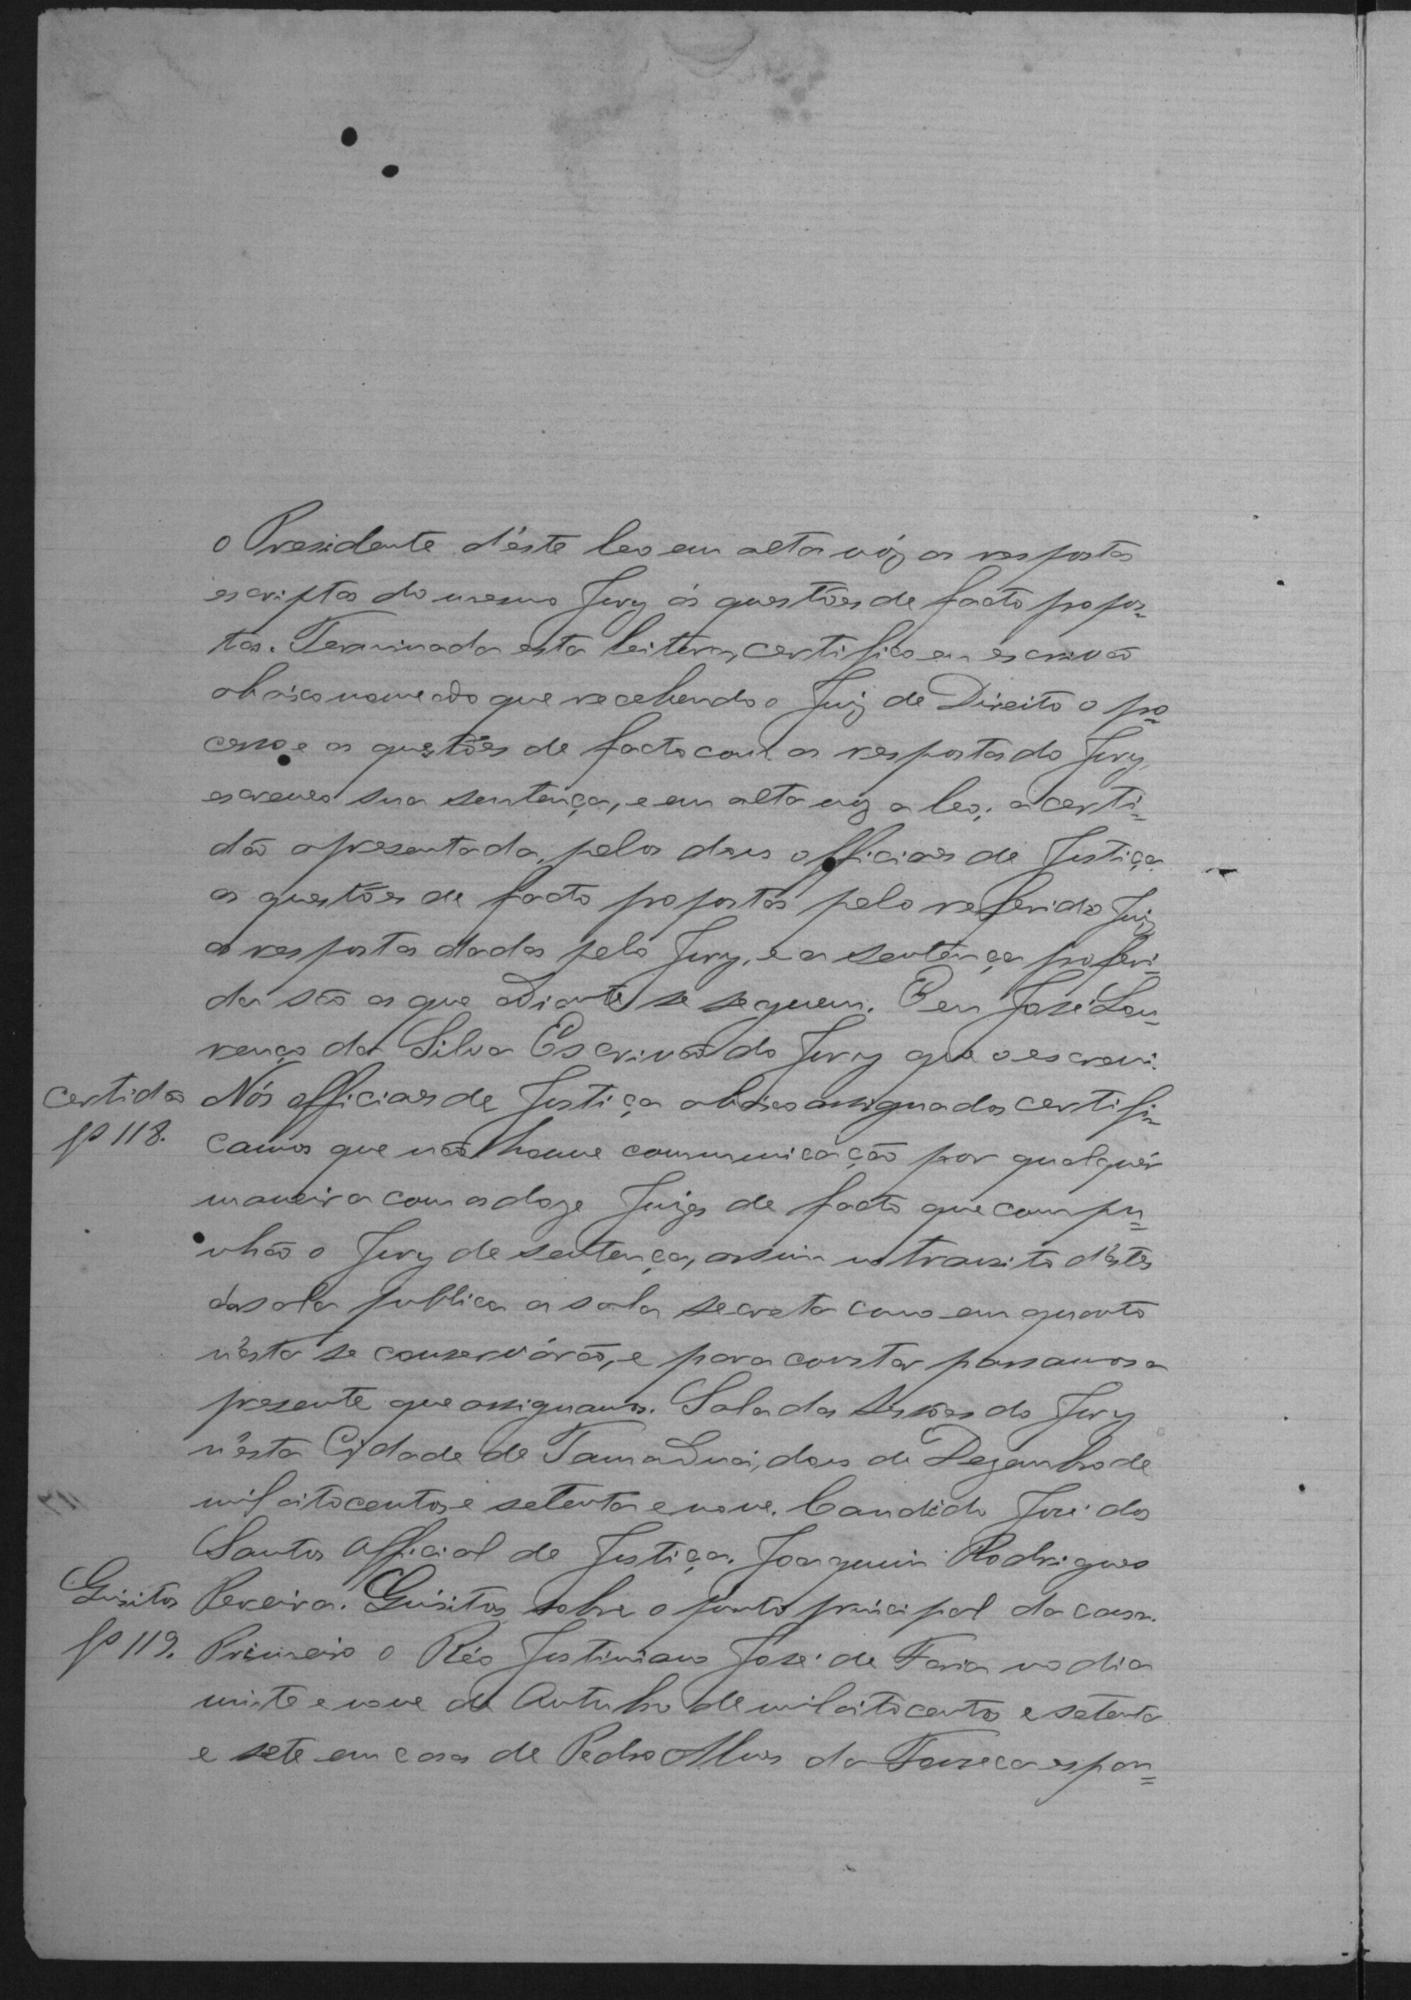 o Presidente d'éste leo em alta vóz as respostas
escriptas do mesmo Jury ás questões de facto propos=
tas. Terminada esta leitura, certifico eu escrivão
abaixo nomeado que recebendo o Juiz de Direito o pro=
cesso e as questões de facto com as respostas do Jury,
escreveo sua sentença, e em alta voz a leo; a certi=
dão apresentada, pelos dous officiaes de Justiça
as questões de facto propostas pelo referido Juiz
as respostas dadas pelo Jury, e a sentença proferi=
da são as que adiante se seguem. E eu José Lou=
renço da Silva Escrivão do Jury que o escrevi.
certidão Nós officiaes de Justiça abaixo assignados certifi=
fs 118. camos que não houve communicação por qualquér
maneira com os doze Juizes de facto que compu=
nhão o Jury de sentença, assim no transito d'éstes
da sala publica a sala secreta como em quanto
n'ésta se conservárão, e para constar passamos a
presente que assignamos. Sala das Sessões do Jury
n'ésta Cidade de Tamanduá, dous de Dezembro de
mil oitocentos e setenta e nove. Candido José dos
Santos Official de Justiça. Joaquim Rodrigues
Quisitos Pereira. Quisitos sobre o ponto principal da causa.
fs 119. Primeiro o Réo Justiniano José de Faria no dia
vinte e nove de Outubro de mil oitocentos e setenta
e sete em casa de Pedro Alves da Fonseca espan=